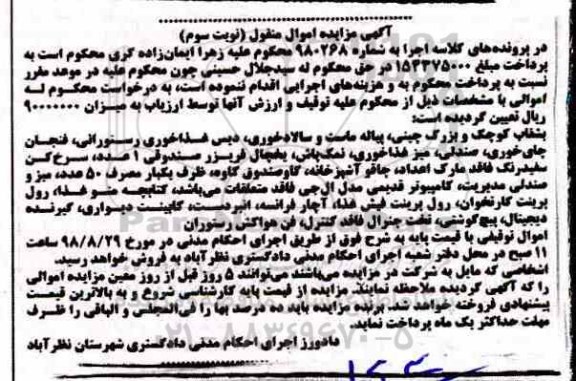 آگهی مزایده اموال منقول (نوبت سوم)
در پرونده‌های کلاسه اجرا به شماره ۹۸۰۲۶۸ محکوم علیه زهرا ایمان‌زاده کری محکوم است به
پرداخت مبلغ ۱۵۳۳۷۵۰۰۰ در حق محکوم له سیدجلال حسینی چون محکوم علیه در موعد مقرر
نسبت به پرداخت محکوم به و هزینه‌های اجرایی اقدام ننموده است، به درخواست محکوم له
اموالی با مشخصات ذیل از محکوم علیه توقیف و ارزش آنها توسط ارزیاب به میزان ۹۰۰۰۰۰۰۰
ریال تعیین گردیده است:
بشقاب کوچک و بزرگ چینی، پیاله ماست و سالادخوری، دیس غذاخوری رستورانی، فنجان
چای‌خوری، صندلی، میز غذاخوری، نمک‌پاش، یخچال فریزر صندوقی ۱ عدد، سرخ‌کن
سفیدرنگ فاقد مارک ۱عداد، چاقو آشپزخانه، گاوصندوق کاوه، ظرف یکبار مصرف ۵۰ عدد، میز و
صندلی مدیریت، کامپیوتر قدیمی مدل ال‌جی فاقد متعلقات می‌باشد، کتابچه منو غذا، رول
پرینت کارتخوان، رول پرینت فیش غذا، آچار فرانسه، انبردست، کابینت دیواری، گیرنده
دیجیتال، پیچ‌گوشتی، تخت جنرال فاقد کنترل، فن هواکش رستوران
اموال توقیفی با قیمت پایه به شرح فوق از طریق اجرای احکام مدنی در مورخ ۹۸/۸/۲۹ ساعت
۱۱ صبح در محل دفتر شعبه اجرای احکام مدنی دادگستری نظرآباد به فروش خواهد رسید.
اشخاصی که مایل به شرکت در مزایده می‌باشند می‌توانند ۵ روز قبل از روز معین مزایده اموالی
را که آگهی گردیده ملاحظه نمایند. مزایده از قیمت پایه کارشناسی شروع و به بالاترین قیمت
پیشنهادی فروخته خواهد شد. برنده مزایده باید ده درصد بها را فی‌المجلس و الباقی را ظرف
مهلت حداکثر یک ماه پرداخت نماید.
دادورز اجرای احکام مدنی دادگستری شهرستان نظرآباد
۰۲۱-۸۸۳۴۹۶۷۰-۵